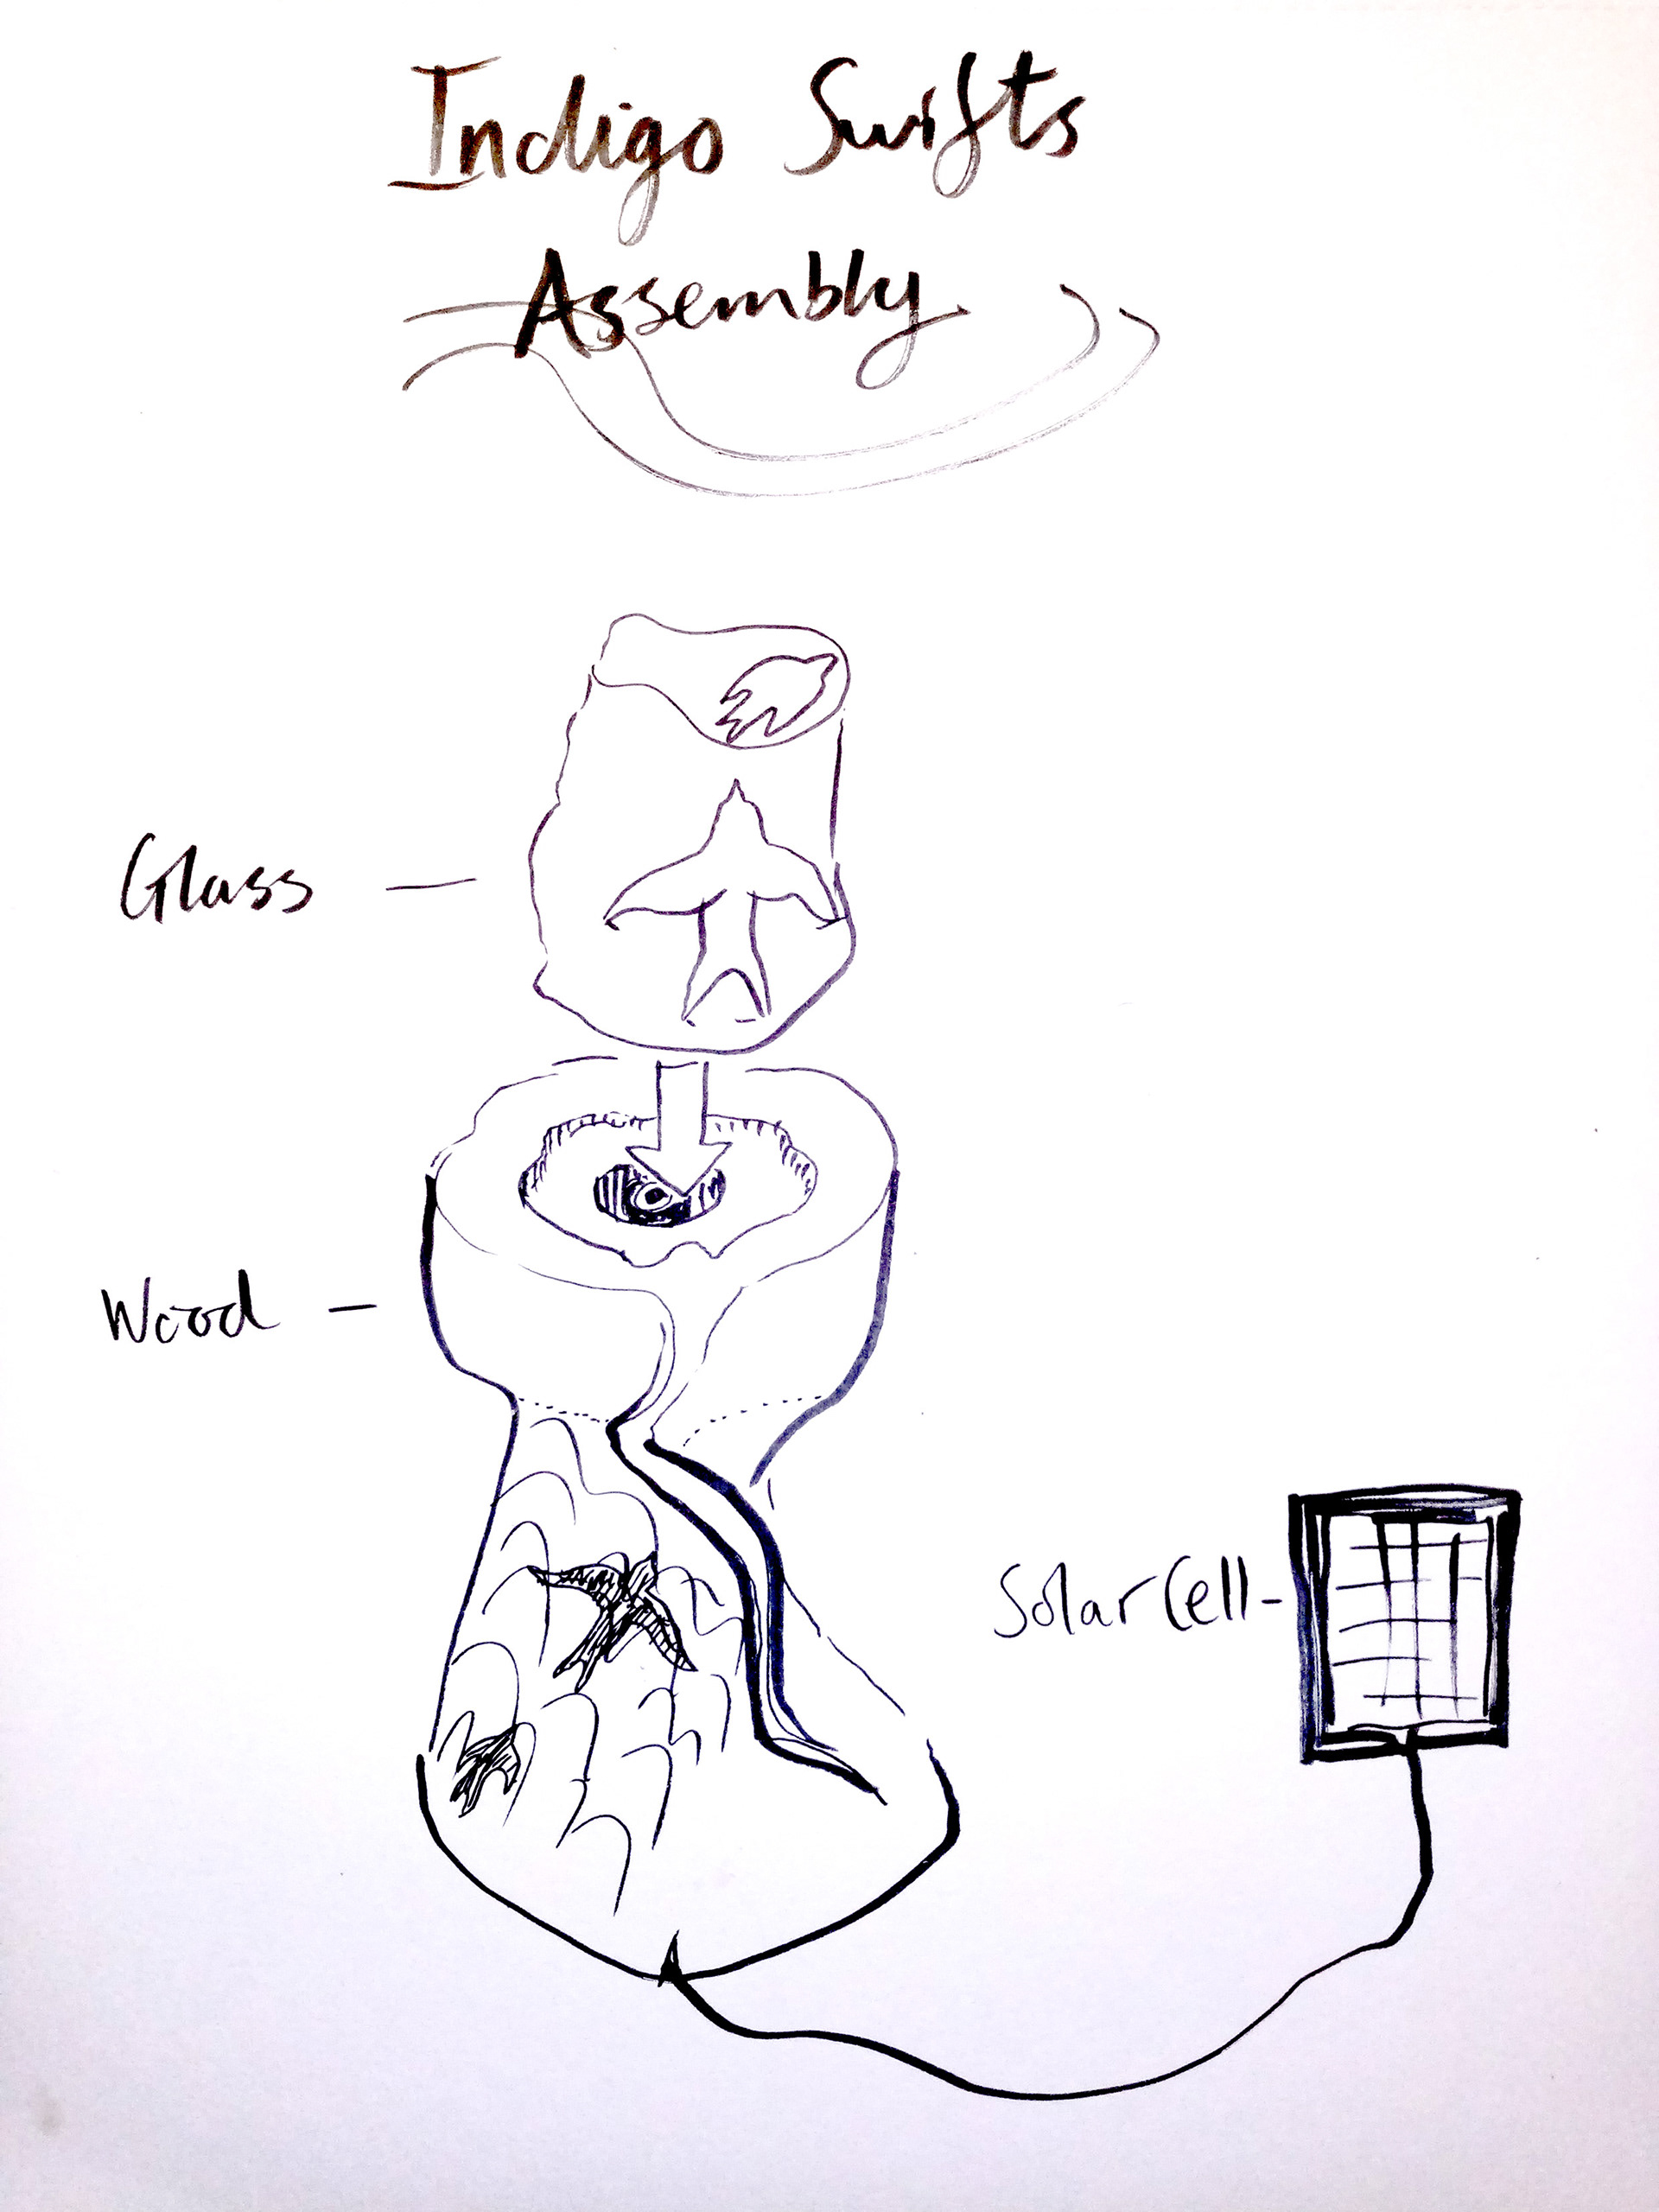 Indigo Swifts
Assembly
Glass
Wood
Solar Cell